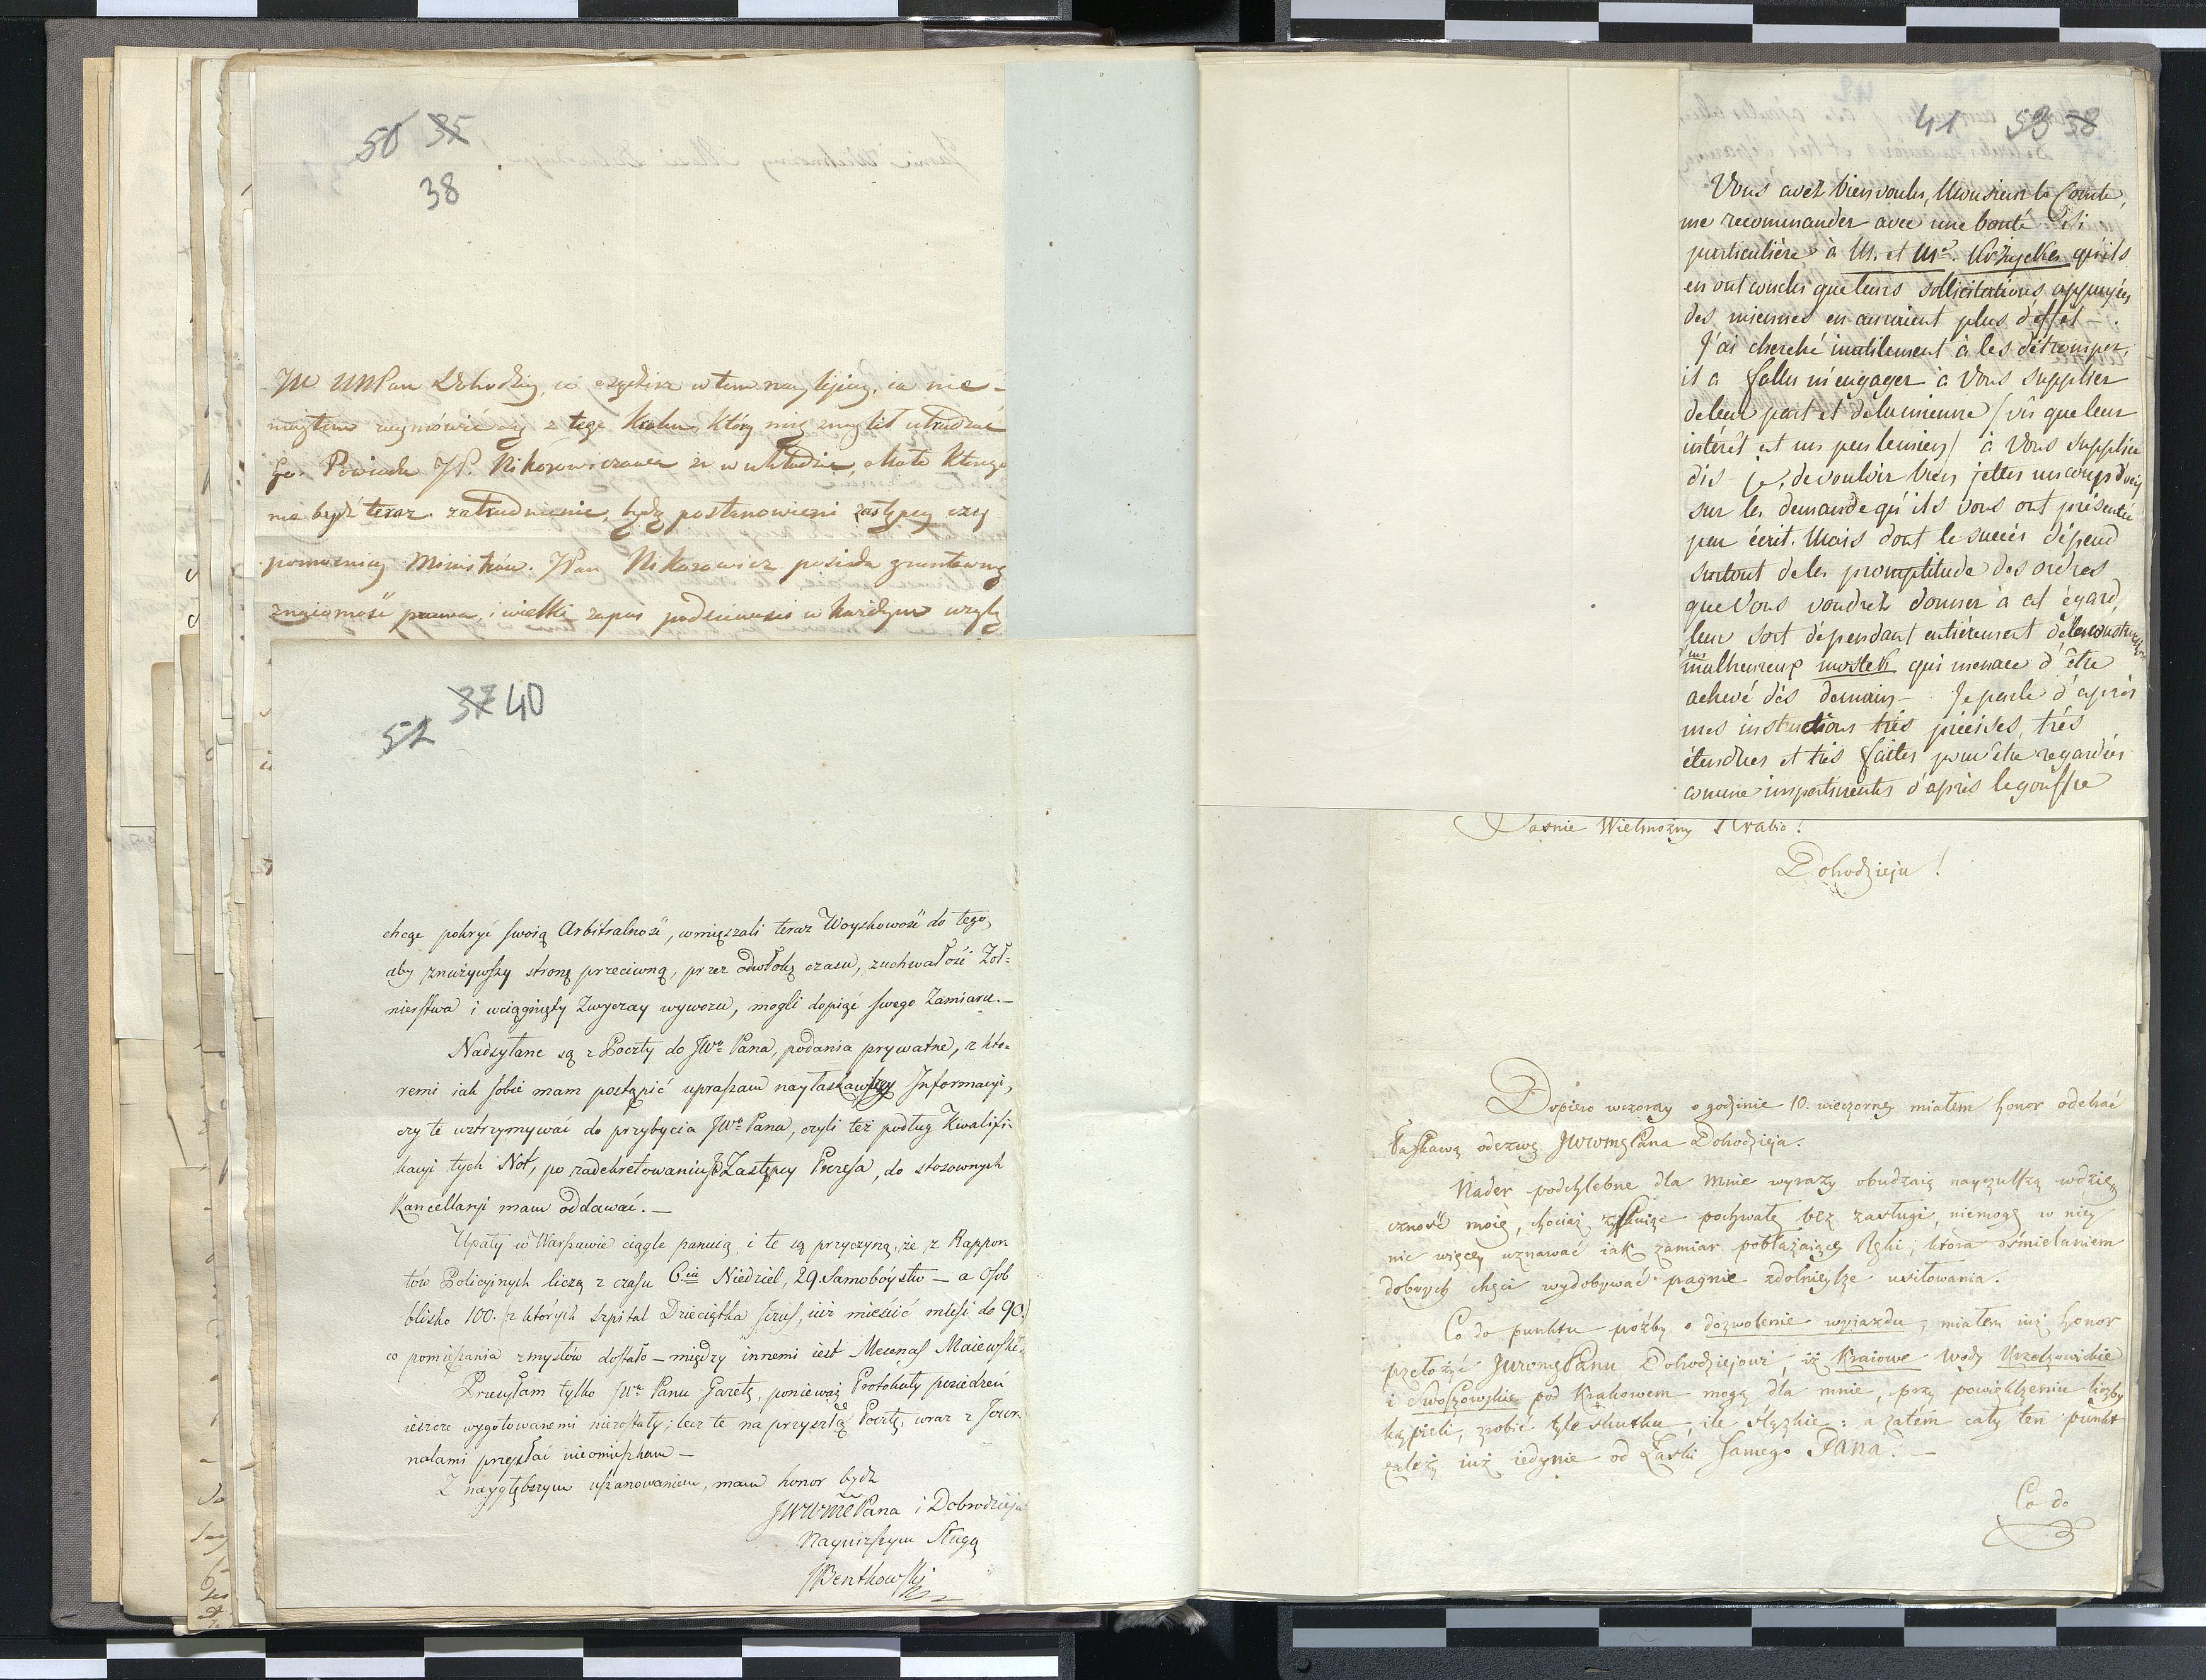 50 35
38
JW WMPan Dobrodziey, iż czytasz w tem nay lepiey, ia nie-
mogłem wymówić się z tego kroku, który mię znaglił utrudzać
Go. Powiada JP. Nikorowiczowa że w układzie, około którego
ma bydź teraz zatrudnienie, będą postanowieni zastępcy czy
pomocnicy Ministrów. JPan Nikorowicz posiada gruntowną
znaiomość prawa, i wielki zapas podściwości w każdym wzglę
52 37 40
chcąc pokryć swoią Arbitralność, wmięszali teraz Woyskowość do tego,
aby znużywszy stronę przeciwną, przez odwłokę czasu, zuchwałość Żoł=
nierstwa i wciągnięty Zwyczay wywozu, mogli dopiąć swego Zamiaru.—
Nadsyłane są z Poczty do JWo Pana, podania prywatne, z któ=
remi iak sobie mam postąpić upraszam nayłaskawszey Informacyi,
czy te wstrzymywać do przybycia JWo Pana, czyli też podług Kwalifi-
kacyi tych Not, po zadekretowaniu Zastępcy Prezesa, do stosownych
Kancellaryi mam oddawać.—
Upały w Warszawie ciągle panuią, i te są przyczyną, że z Rappor
tów Policyinych liczą z czasu 6iu Niedziel, 29. Samobóystw — a Osób
blisko 100. (z których Szpital Dzieciątka Jezus, iuż mieścić musi do 90.)
co pomięszania zmysłów dostało — między innemi iest Mecenas Maiewski.
Przesyłam tylko JWo Panu Gazetę, ponieważ Protokuły posiedzeń
ieszcze wygotowanemi niezostały; lecz te na przyszłą Pocztę, wraz z Jour-
nalami przesłać nieomieszkam —
Z naygłębszym uszanowaniem, mam honor bydź
JWWMC Pana i Dobrodzieja
Nayniższym Sługą
Bentkowski
41 53 38
Vous avez bien voulu, Monsieur le Comte,
me recommander avec une bonté si
particulière à M. et Me. Krzyckis qu'ils
en ont conclu que leurs sollicitations appuyées
des miennes en auraient plus d'effet —
J'ai cherché inutilement à les détromper,
il a fallu m'engager à Vous supplier
de leur part et de la mienne (vû que leur
intérêt est un peu le mien) à Vous supplier
dis-je, de vouloir bien jetter un coup d'oeil
sur la demande qu'ils vous ont présentée
par écrit. Mais dont le succès dépend
surtout de la promptitude des ordres
que Vous voudrez donner à cet égard,
leur sort dépendant entièrement de la construction
d'un
malheureux mostek qui menace d'être
achevé dès demain — Je parle d'après
mes instructions très précises, très
étendues et très faites pour être regardées
comme impertinentes d'après le gouffre
Jaśnie Wielmożny Hrabio!
Dobodzieju!
Dopiero wczoray o godzinie 10. wieczorney miałem honor odebrać
łaskawą odezwę JWWMgPana Dobodzieja.
Nader podchlebne dla mnie wyrazy obudzaią nayczulszą wdzię
czność moię, chociaż zyskuiąc pochwałę bez zasługi, niemogę w niey
nic więcey uznawać iak zamiar pobłażaiącey Ręki, która ośmielaniem
dobrych chęci wydobywać pragnie zdolnieysze usiłowania.
Co do punktu proźby o dozwolenie wyiazdu, miałem iuż honor
przełożyć JWWMgPanu Dobodziejowi, iż Kraiowe Wody Krzeszowickie
i Swoszowskie pod Krakowem mogą dla mnie, przy powiększeniu liczby
kąpieli, zrobić tyle skutku, ile Sląskie: a zatém cały ten punkt
zależy iuż iedynie od Łaski Samego Pana. —
Co do